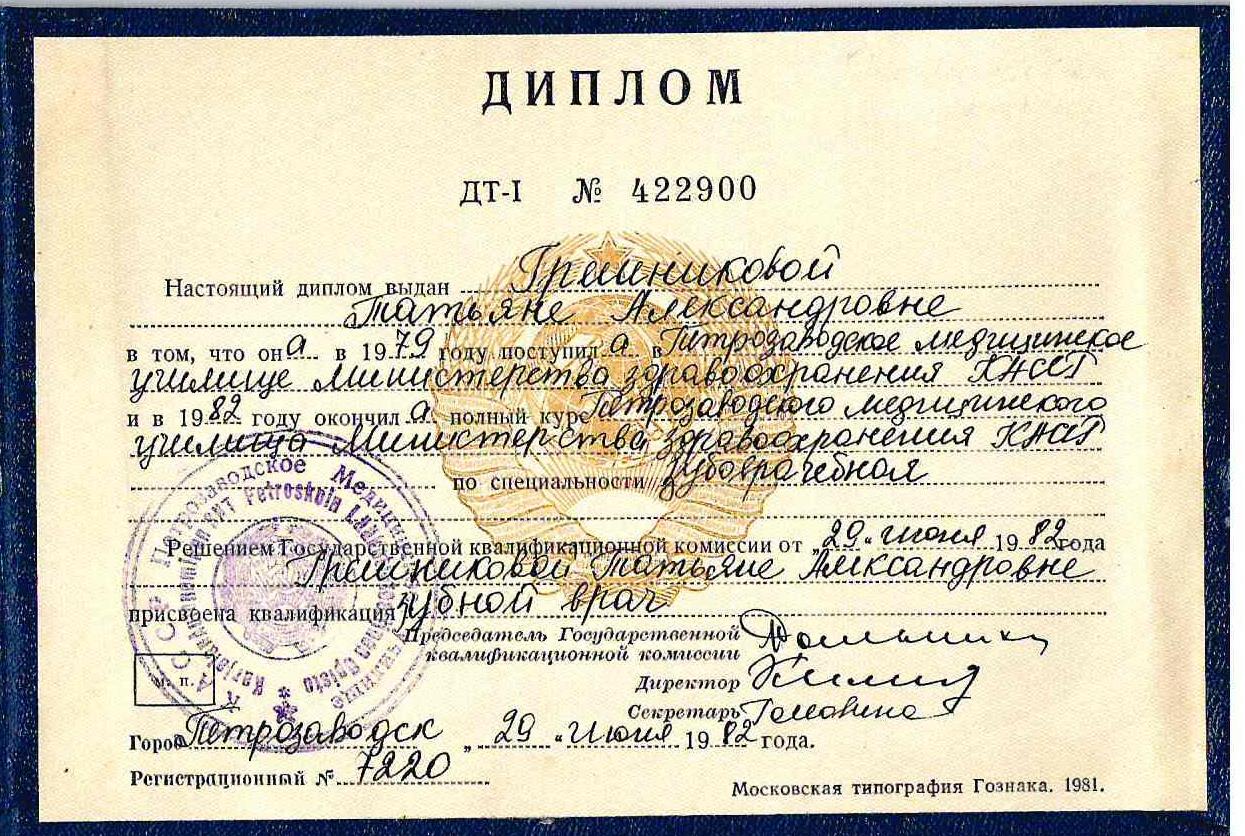 ДИПЛОМ
ДТ-I № 422900
Настоящий диплом выдан Грешниковой
Татьяне Александровне
в том, что она в 1979 году поступила в Петрозаводское медицинское
училище Министерства здравоохранения КАССР
и в 1982 году окончила полный курс Петрозаводского медицинского
училища Министерства здравоохранения КАССР
по специальности зубоврачебная
Решением Государственной квалификационной комиссии от „29" июня 1982 года
Грешниковой Татьяне Александровне
присвоена квалификация зубной врач
Председатель Государственной
квалификационной комиссии
Директор
Секретарь
М. П.
Город Петрозаводск „29" июня 1982 года.
Регистрационный № 7220
Московская типография Гознака. 1981.
Петрозаводское Медицинское
Petroskoin